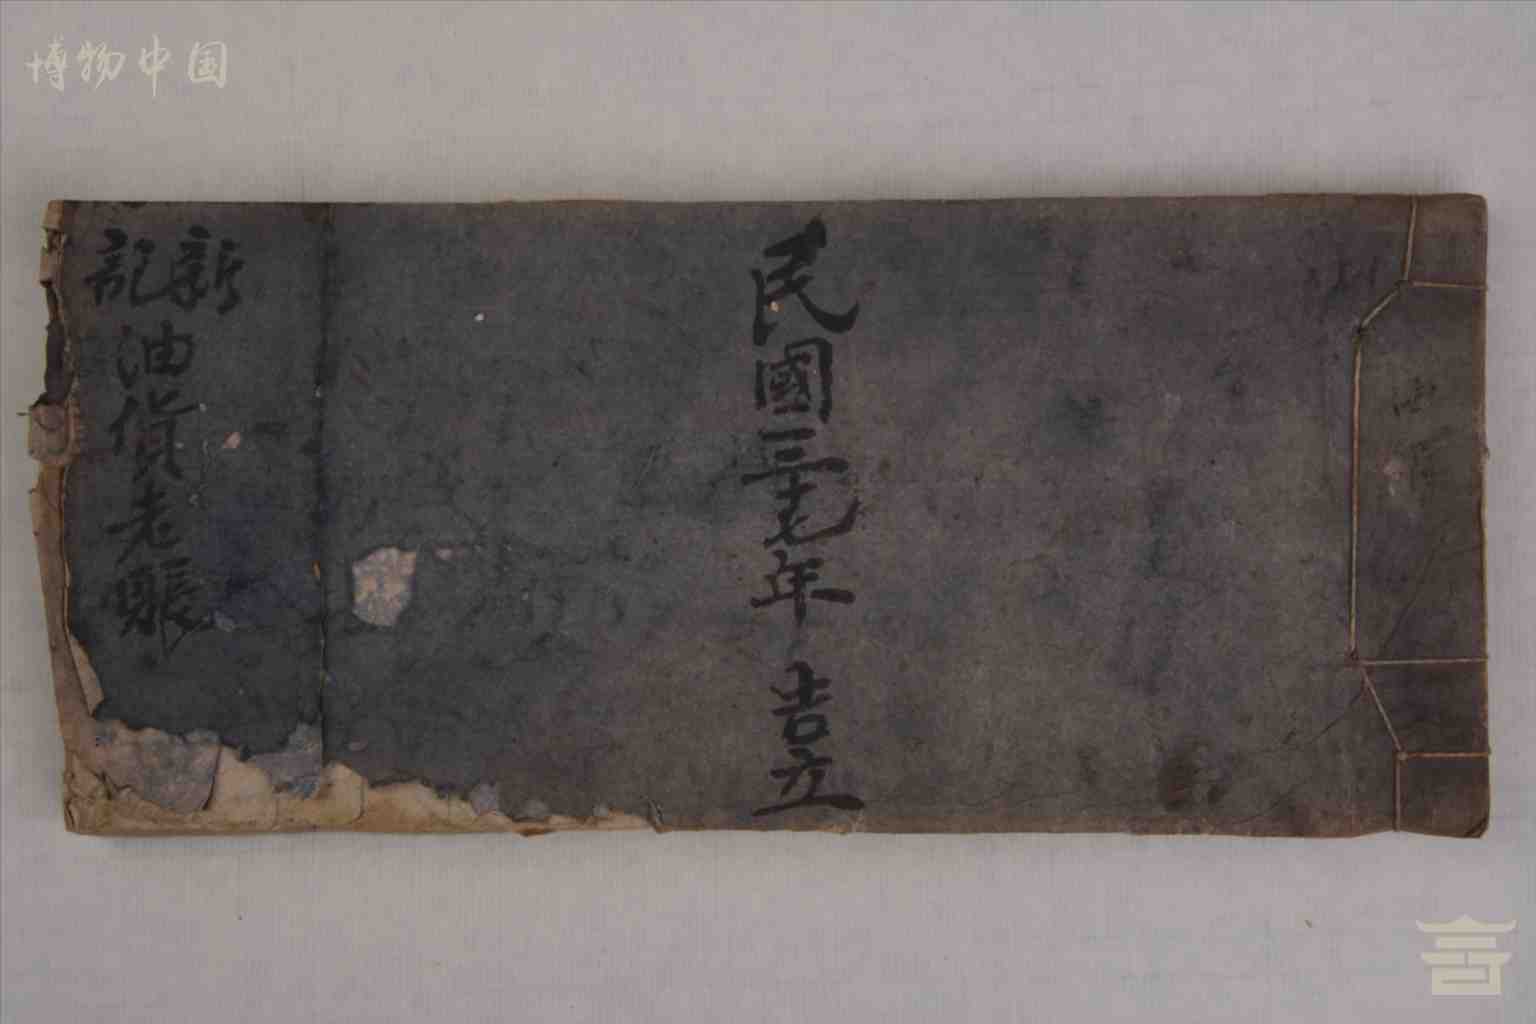 博物中国
民國三十七年 吉立
新記
油貨老賬